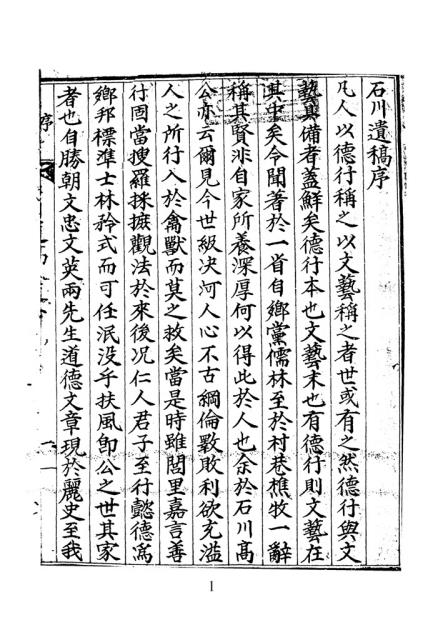 石川遺稿序
凡人以德行稱之以文藝稱之者世或有之然德行與文
藝具備者盖鮮矣德行本也文藝末也有德行則文藝在
其中矣今聞著於一省自鄉黨儒林至於村巷樵牧一辭
稱其賢非自家所養深厚何以得此於人也余於石川高
公亦云爾見今世級决河人心不古綱倫斁敗利欲充溢
人之所行入於禽獸而莫之救矣當是時雖閭里嘉言善
行固當搜羅採摭觀法於來後况仁人君子至行懿德爲
鄉邦標準士林矜式而可任泯没乎扶風卽公之世其家
者也自勝朝文忠文英兩先生道德文章現於麗史至我
序
1